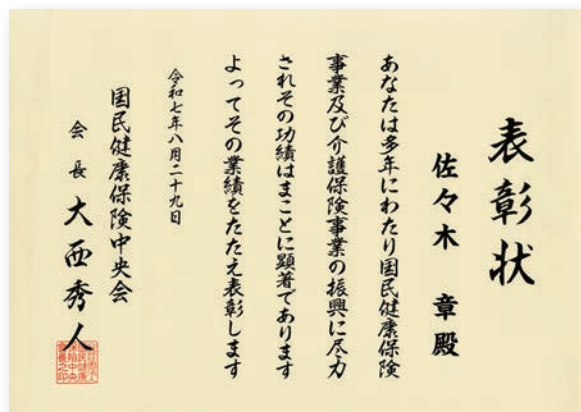 表彰状
佐々木 章殿
あなたは多年にわたり国民健康保険
事業及び介護保険事業の振興に尽力
されその功績はまことに顕著であります
よってその業績をたたえ表彰します
令和七年八月二十九日
国民健康保険中央会
会長 大西秀人